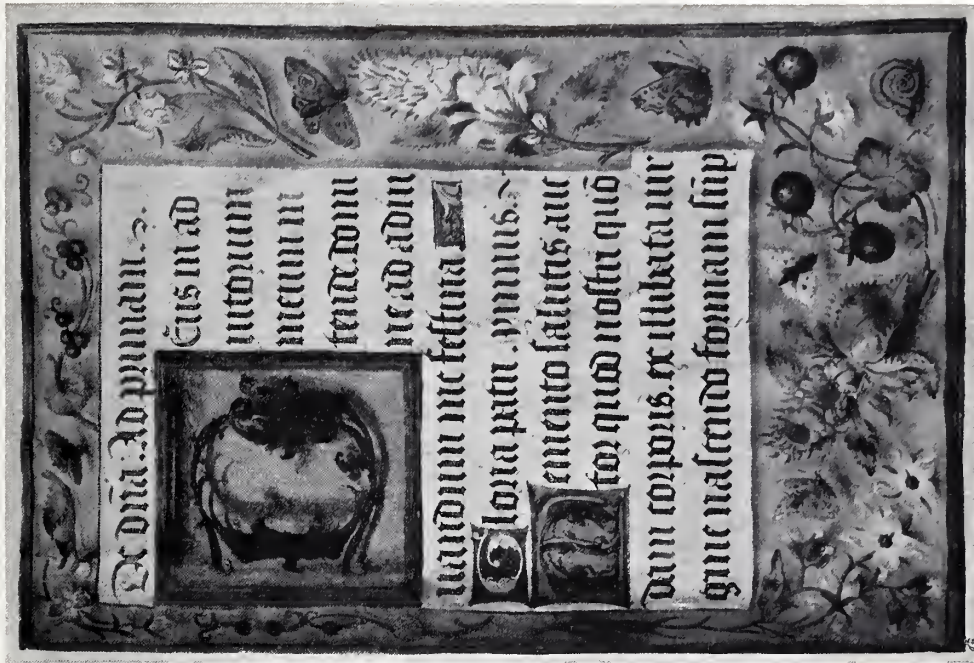 De dña. Ad primam.
Deus in ad
iutorium
meum in
tende. Domi
ne ad adiu
uandum me festina
Gloria patri. ymnus.
Memento salutis auc
tor quod nostri quō
dam corporis. ex illibata uir
gine nascendo formam sūp